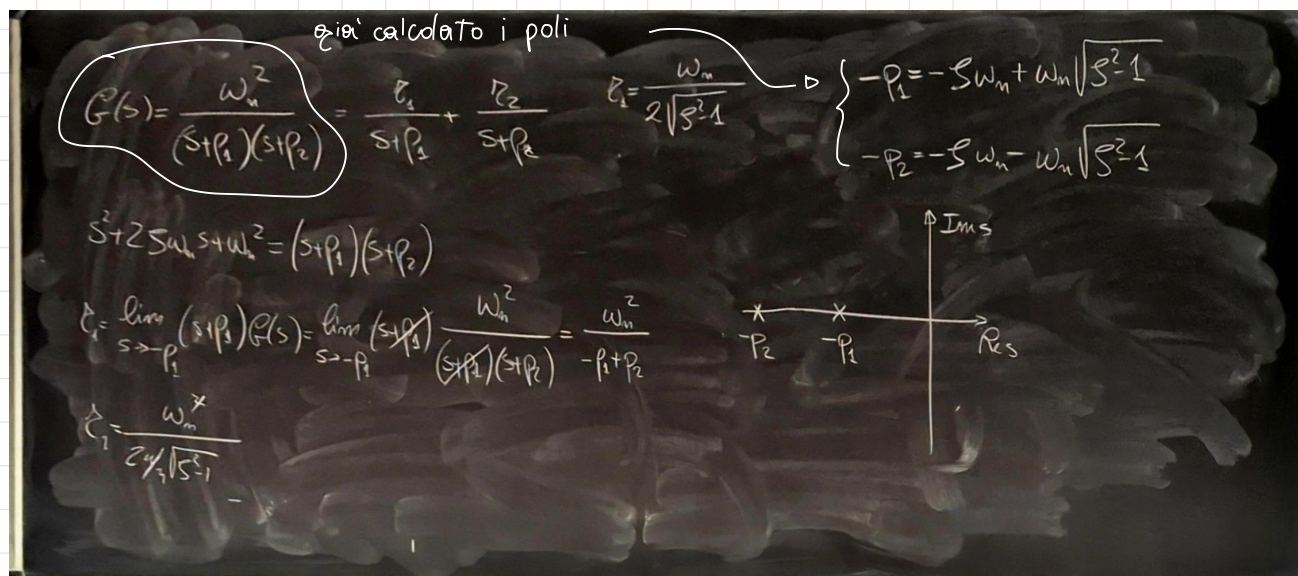 già calcolato i poli
G(s)= ωn² / (s+p1)(s+p2) = r1 / s+p1 + r2 / s+p2
r1= ωn / 2√ζ²-1
-p1=-ζωn+ωn√ζ²-1
-p2=-ζωn-ωn√ζ²-1
s²+2ζωn s+ωn²=(s+p1)(s+p2)
Im s
r1= lim s→-p1 (s+p1)G(s)= lim s→-p1 (s+p1) ωn² / (s+p1)(s+p2) = ωn² / -p1+p2
-p2 -p1 Re s
r1= ωn² / 2ωn√ζ²-1